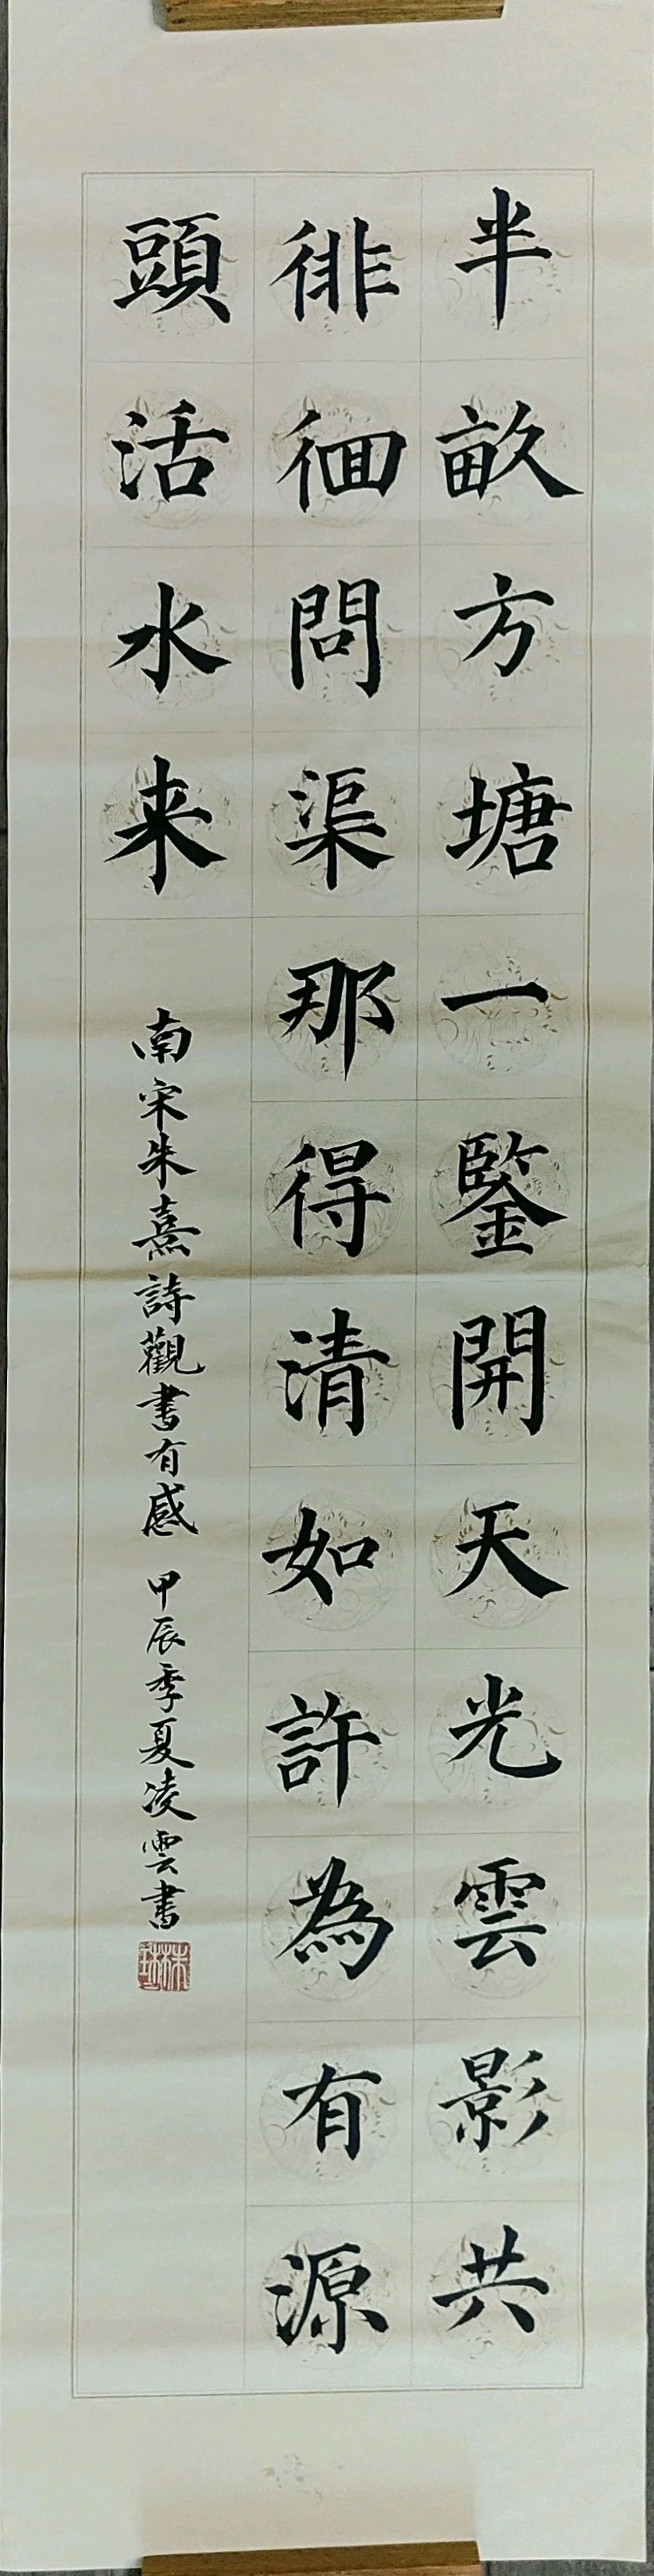 半畝方塘一鑒開天光雲影共
徘徊問渠那得清如許為有源
頭活水来
南宋朱熹詩觀書有感 甲辰季夏凌雲書